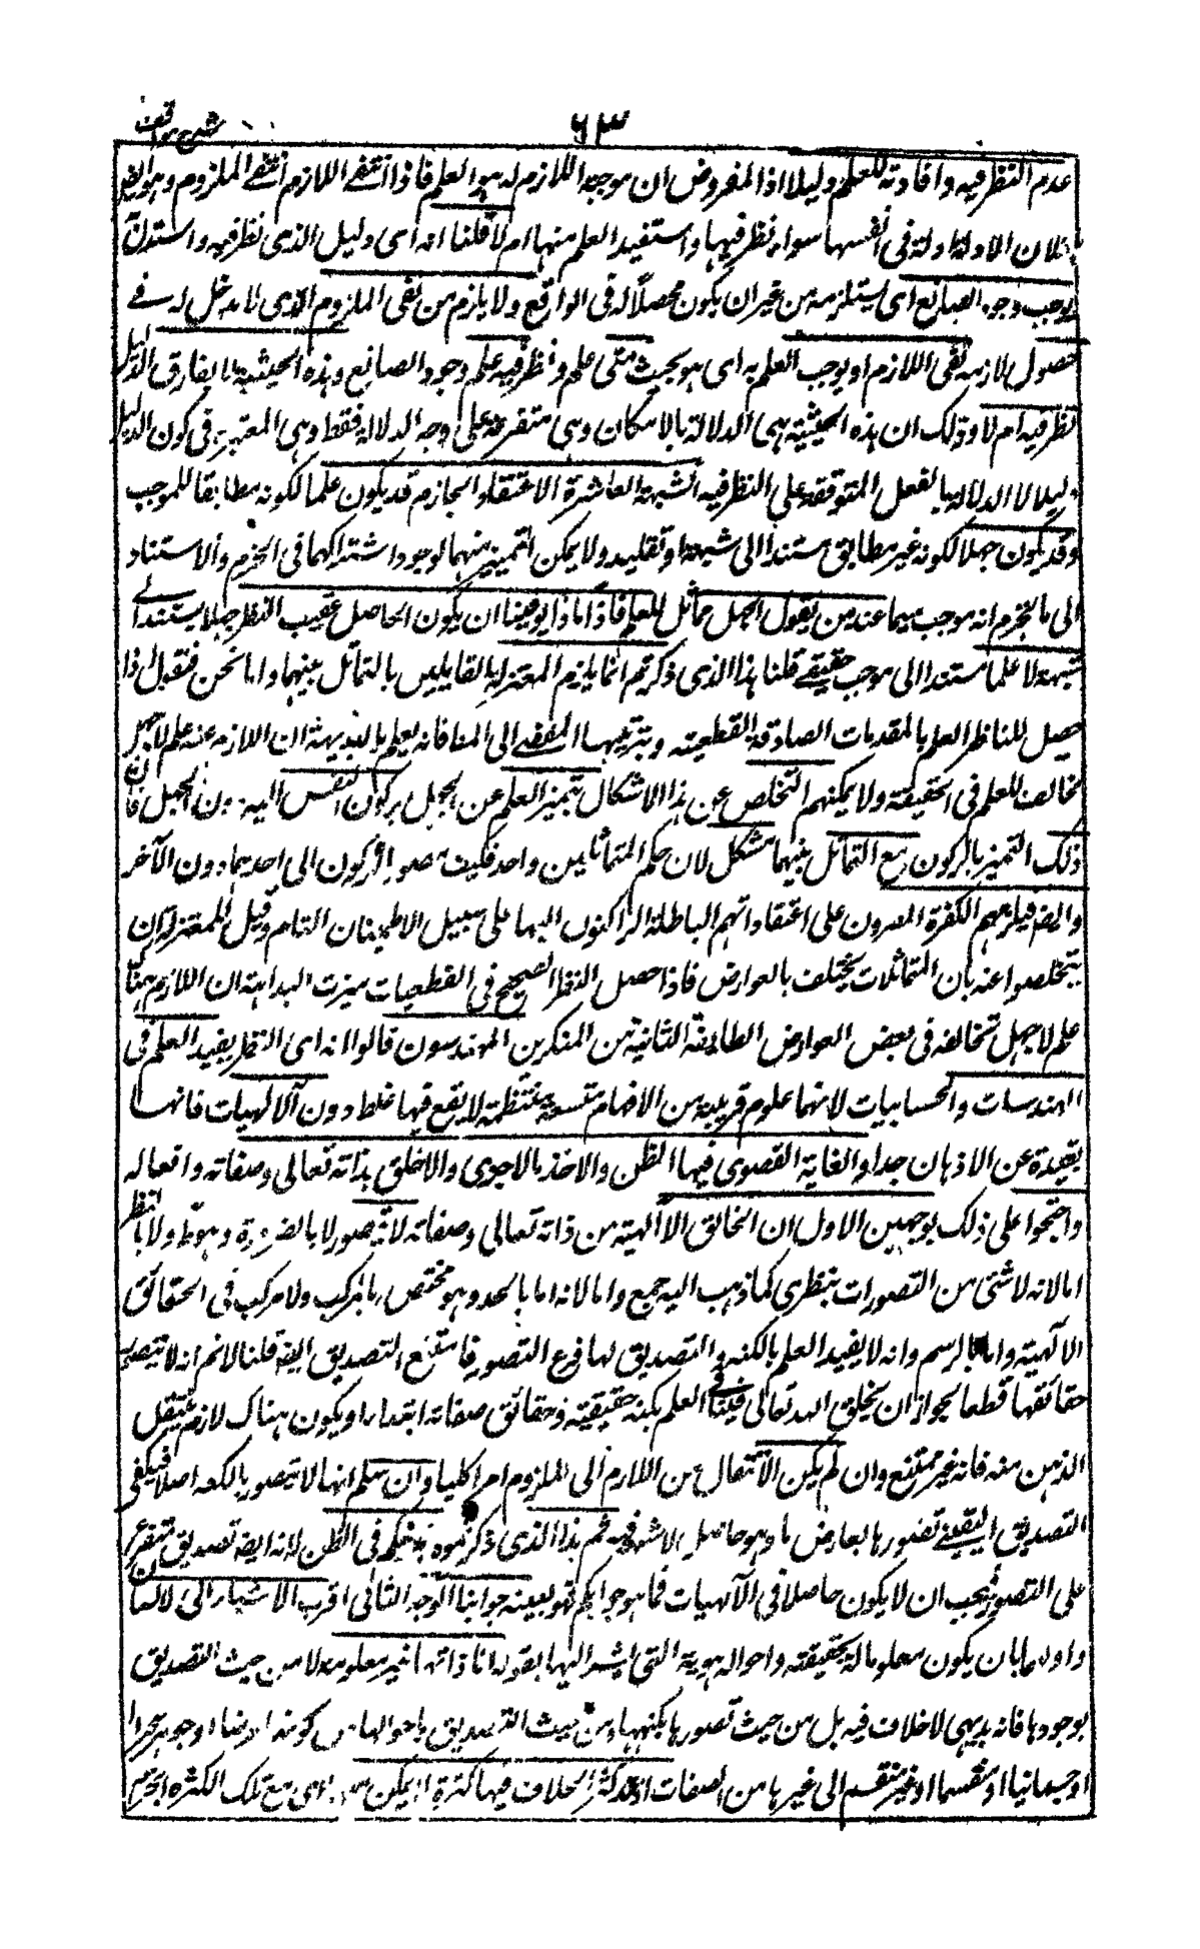 شرح مواقف
٦٣
عدم النظر فيه وافادته للعلم دليلا اذ المفروض ان موجبه اللازم له هو العلم فاذا انتفى اللازم انتفى الملزوم وهو ايضا
بط لان الادلة ادلة فى انفسها سواء نظر فيها واستفيد العلم منها ام لا قلنا انه اى دليل الذى نظر فيه واستدل
يوجب وجود الصانع اى يستلزمه من غير ان يكون محصلا له فى الواقع ولا يلزم من نفى الملزوم الذى لا مدخل له فى
حصول لازمه نفى اللازم او يوجب العلم به اى هو بحيث متى علم ونظر فيه علم وجود الصانع وهذه الحيثية لا يفارق الدليل
نظر فيه ام لا وذلك ان هذه الحيثية هى الدلالة بالامكان وهى متفرعة على وجه الدلالة فقط وهى المعتبرة فى كون الدليل
دليلا لا الدلالة بالفعل المتوقفة على النظر فيه الشبهة العاشرة الاعتقاد الجازم قد يكون علما لكونه مطابقا للموجب
وقد يكون جهلا لكونه غير مطابق مستندا الى شبهة او تقليد ولا يمكن التمييز بينهما لوجود اشتراكهما فى الجزم والاستناد
الى ما يجزم انه موجب سيما عند من يقول الجهل مماثل للعلم فاذا ماذا يؤمننا ان يكون الحاصل عقيب النظر جهلا يستند الى
شبهة لا علما مستندا الى موجب حقيقى قلنا هذا الذى ذكرتم انما يلزم المعتزلة القايلين بالتماثل بينهما واما نحن فنقول اذا
حصل للناظر العلم بالمقدمات الصادقة القطعية وبترتيبها المفضى الى المط فانه يعلم بالبديهة ان اللازم عنه علم لا جهل
مخالف للعلم فى الحقيقة ولا يمكنهم التخلص عن هذا الاشكال بتميز العلم عن الجهل بركون النفس اليه دون الجهل فان
ذلك التميز بالركون مع التماثل بينهما مشكل لان حكم المتماثلين واحد فكيف تصور الركون الى احدهما دون الآخر
وايضا فيلزمهم الكفرة المصرون على اعتقاداتهم الباطلة الراكنون اليها على سبيل الاطمينان التام وقيل للمعتزلة ان
يتخلصوا عنه بان التماثلات يختلف بالعوارض فاذا حصل النظر الصحيح فى القطعيات ميزت البداهة ان اللازم هنا
علم لا جهل تخالفه فى بعض العوارض الطايفة الثانية من المنكرين المهندسون قالوا انه اى النظر يفيد العلم فى
الهندسات والحسابيات لانهما علوم قريبة من الافهام متسقة منتظمة لا يقع فيها غلط دون الالهيات فانها
بعيدة عن الاذهان جدا والغاية القصوى فيها الظن والاخذ بالاحرى والاخلق بذاته تعالى وصفاته وافعاله
واحتجوا على ذلك بوجهين الاول ان الحقائق الالهية من ذاته تعالى وصفاته لا تتصور لا بالضرورة وهو ظ ولا بالنظر
اما لانه لا شئ من التصورات بنظرى كما ذهب اليه جمع واما لانه اما بالحد وهو مختص بالمركب ولا مركب فى الحقائق
الالهية واما بالرسم وانه لا يفيد العلم بالكنه والتصديق لها فرع التصور فامتنع التصديق ايضا قلنا لا نم انه لا تتصور
حقائقها قطعا لجواز ان يخلق الله تعالى فينا العلم بكنه حقيقته وحقائق صفاته ابتداء او يكون هناك لازم ينتقل
الذهن منه فانه غير ممتنع وان لم يكن الانتقال من اللازم الى الملزوم امرا كليا وان سلم انها لا تتصور بالكنه اصلا فيكفى
التصديق اليقينى تصورها بعارض ما وهو حاصل لا شبهة فيه ثم هذا الذى ذكرتموه يلزمكم فى الظن لانه ايضا تصديق متفرع
على التصور فيجب ان لا يكون حاصلا فى الآلهيات فما هو جوابكم فهو بعينه جوابنا الوجه الثانى اقرب الاشياء الى الانسان
واولاها بان يكون معلوما له بحقيقته واحواله هويته التى يشير اليها بقوله انا وانها غير معلومة لا من حيث التصديق
بوجودها فانه بديهى لا خلاف فيه بل من حيث تصورها بكنهها ومن حيث التصديق باحوالها من كونها عرضا او جوهرا مجردا
او جسمانيا او منقسما او غير منقسم الى غيرها من الصفات اذ قد كثر الخلاف فيها كثرة لا يمكن معها اى مع تلك الكثرة الجزم